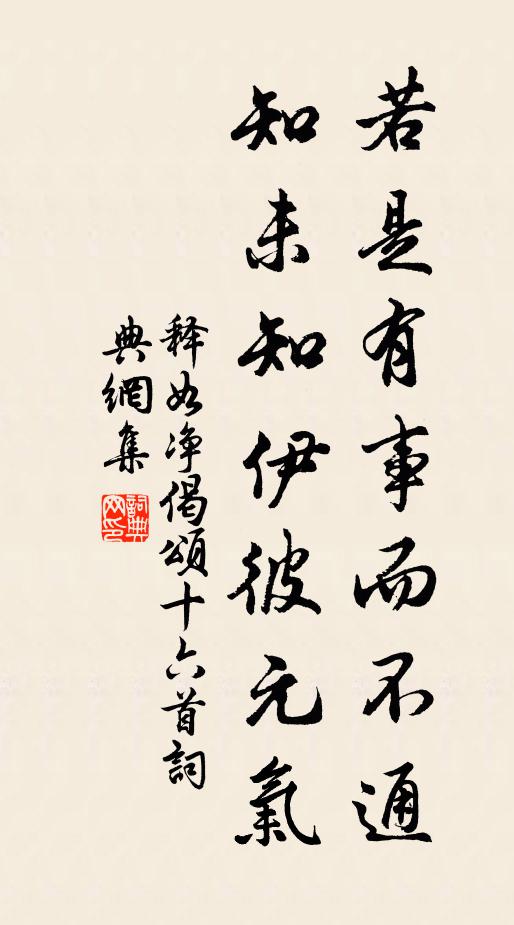 若是有事而不通
知未知伊彼元氣
释如净偈頌十六首詞
典網集
詞典
网印